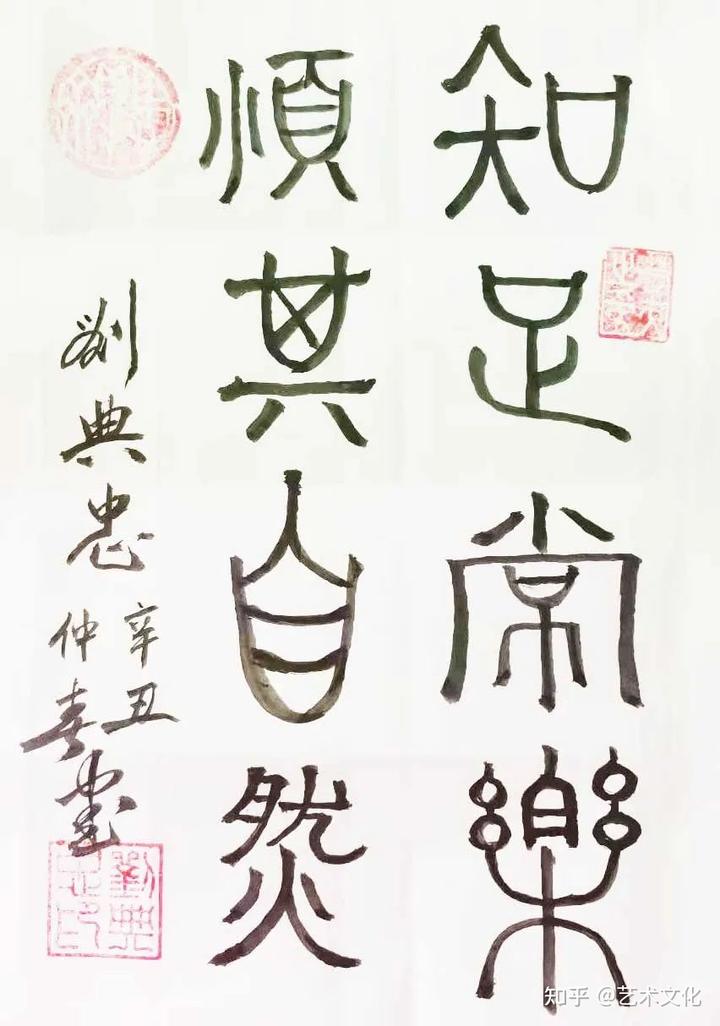 知足常樂
順其自然
劉典忠
辛丑
仲春書
劉典
忠印
知乎 @艺术文化